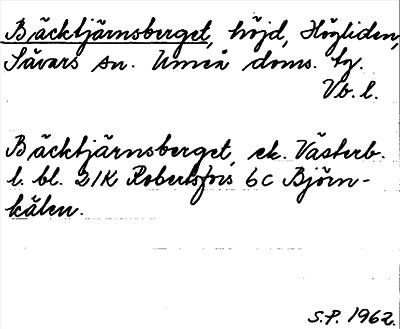 Bäcktjärnsberget, höjd, Högliden,
Sävars sn. Umeå doms. tg.
Vb. l.
Bäcktjärnsberget, ek. Västerb.
l. bl. 21K Robertsfors 6C Björn-
kälen.
S.P. 1962.